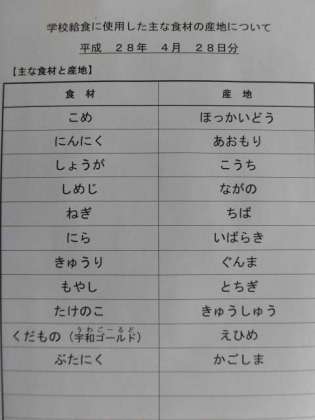 学校給食に使用した主な食材の産地について
平成 28年 4月 28日分
【主な食材と産地】
食 材 産 地
こめ ほっかいどう
にんにく あおもり
しょうが こうち
しめじ ながの
ねぎ ちば
にら いばらき
きゅうり ぐんま
もやし とちぎ
たけのこ きゅうしゅう
うわごーるど
くだもの（宇和ゴールド） えひめ
ぶたにく かごしま